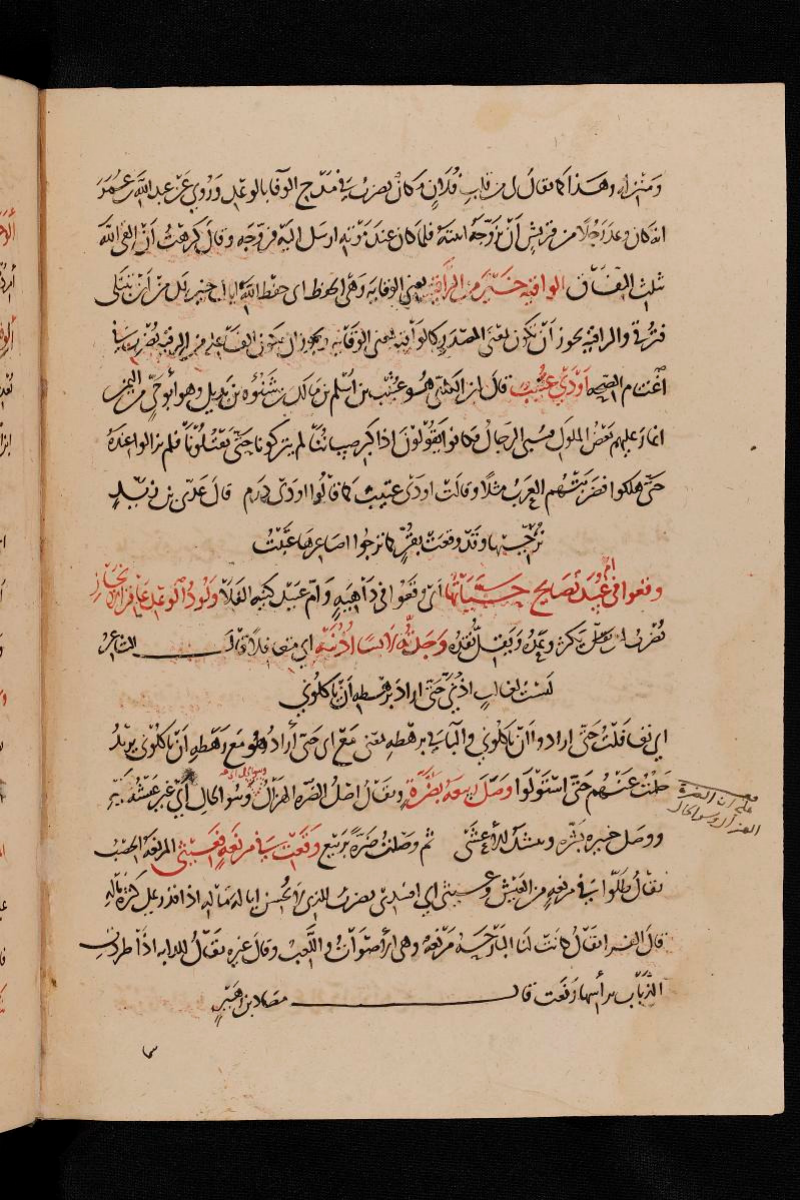 ومنزله وهذا كما يقال ل من قاب قلان وكان يضرب في مدح الوفا بالوعد وروي عن عبد الله بن عمر
انه كان وعد رجلا من قريش أن يزوجه ابنته فلما كان عند موته ارسل اليه فزوجه وقال كرهت أن ألقى الله
بثلث النفاق الواقية خير من الراقية يعني الوقاية وهي الحفظ اى حفظ الله اياك خير لك من أن تبتلى
فترقى والراقية يجوز أن تكون بمعنى المصدر كالواقية بمعنى الوقاية ويجوز ان تكون الفاعلة من الرقية يضرب في
اغتنام الصحة أودى عتيب قال ابن الكلبي هو عتيب بن اسلم بن مالك بن شنوه بن بديل وهو أبو حي من اليمن
اغار عليهم بعض الملوك فسبى الرجال فكانوا يقولون اذا كبر صبياننا لم يتركونا حتى يفتكونا فلم يزالوا عنده
حتى هلكوا فضربتهم العرب مثلا وقالت اودى عتيب كما قالوا اودى درم قال عدي بن زيد
ترجيها وقد وقعت بقر كما ترجوا اصاغرها عتيب
وقعوا في ام عبيد تصايح حسياتها أي وقعوا في داهية وام عبيد كنية الفلاة ولود الوعد عاقر الانجاز
يضرب لمن يكثر وعده ويقل نقده وجدته لابسا اذنيه اي متغافلا قال الشاعر
لبست لغالب اذني حتى اراد برهطه أن ياكلوني
اي تغافلت حتى ارادوا أن ياكلوني والباء في برهطه بمعنى مع اى حتى أراد وهو مع رهطه أن ياكلوني يريد
حلمت عنهم حتى استولوا وصل ربيعه بضرة ويقال اصل الضرة الهزال وسوا الحال أي غير عيشه
ووصل خيره بشره وينشد للاعشى ثم وصلت ضرة بربيع وقعت في مرتعة فعيثي المرتعة الخصب
يقال ظلوا في مرتعة من العيش وعيثي اي افسدي يضرب للذي لا يحسن ايالة ماله اذا اقدر على كثرة ماله
قال الفرا يقال كانت لنا البارحة مرتعة وهي الأصوات واللعب وقال غيره يقال للدابه اذا طردت
الذباب برأسها رتعت قال مصاد بن زهير
على ان الضرة
الهزال وسوا الحال